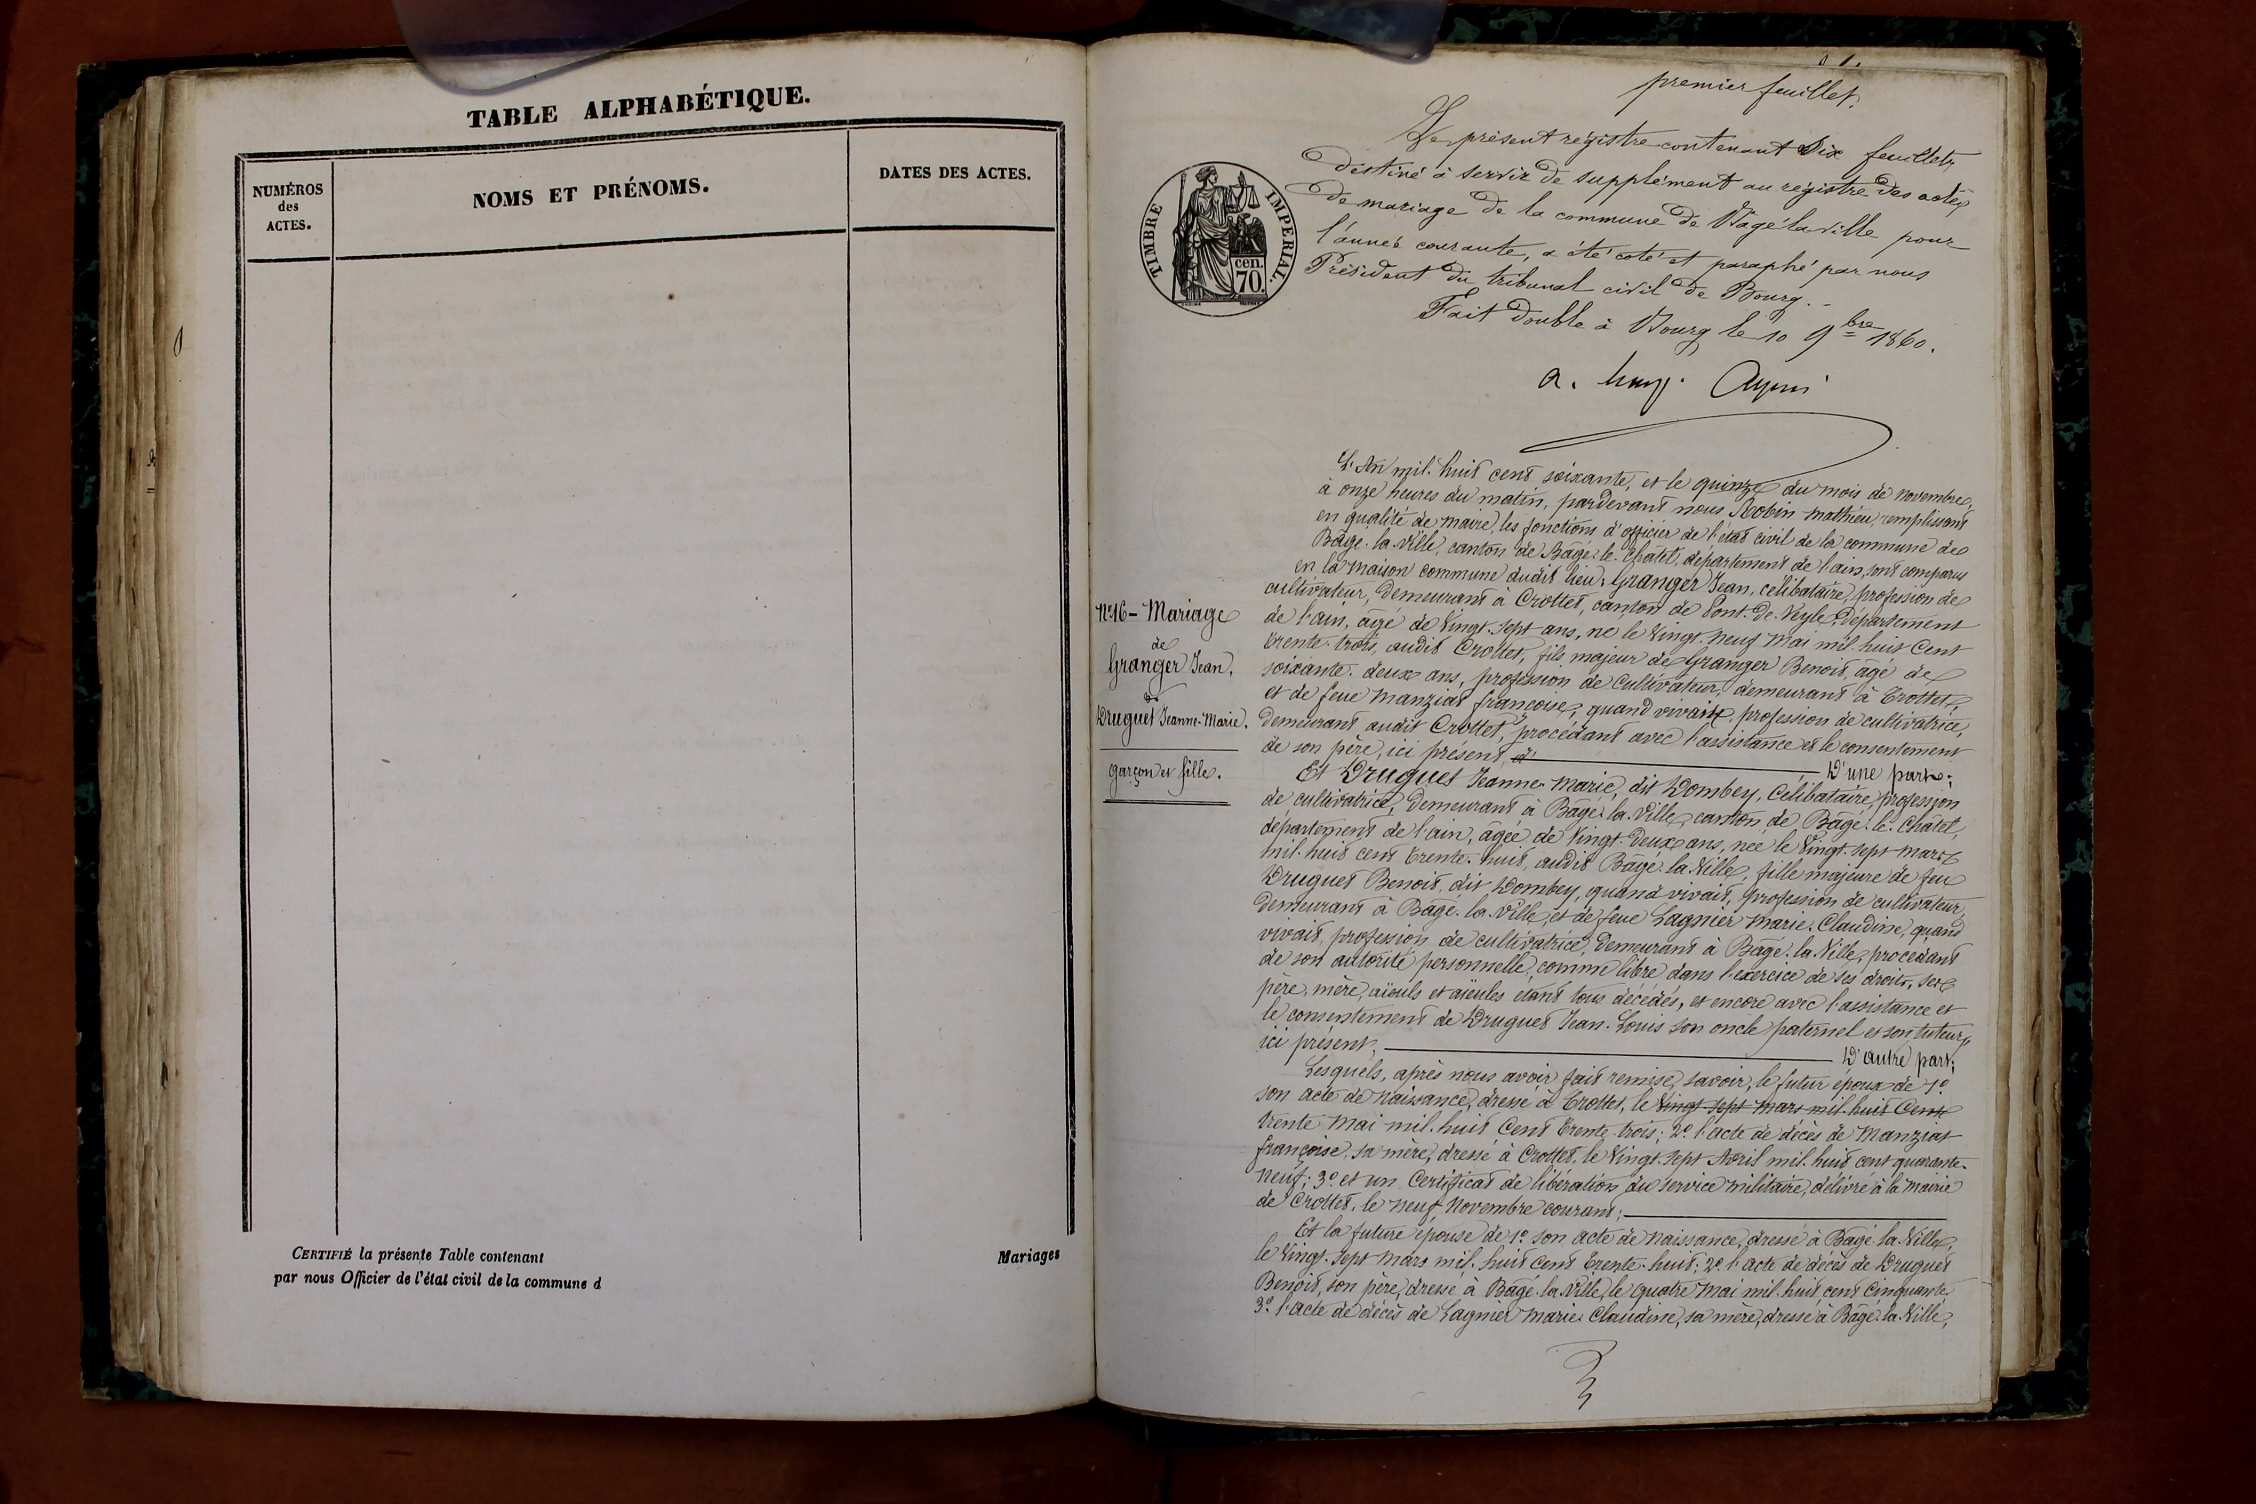 TABLE ALPHABÉTIQUE.
NUMÉROS
des
ACTES.
NOMS ET PRÉNOMS.
DATES DES ACTES.
CERTIFIÉ la présente Table contenant
Mariages
par nous Officier de l'état civil de la commune d
premier feuillet.
TIMBRE IMPERIAL.
70 cen.
Le présent régistre contenant Dix feuillets
destiné à servir de supplément au régistre des actes
de mariage de la commune de Bagé la ville pour
l'année courante, a été coté et paraphé par nous
Président du tribunal civil de Bourg. -
Fait double à Bourg le 10 9bre 1860.
N°16 - Mariage
de
Granger Jean,
&
Druguet Jeanne-Marie.
garçon et fille.
L'An mil. huit cent soixante, et le quinze du mois de novembre,
à onze heures du matin, pardevant nous Robin Mathieu, remplissant
en qualité de maire, les fonctions d'officier de l'état civil de la commune de
Bâgé-la-Ville, canton de Bâgé-le-Châtel, département de l'ain, sont comparus
en la maison commune dudit lieu, Granger Jean, célibataire, profession de
cultivateur, demeurant à Crottet, canton de Pont-de-Veyle, Département
de l'ain, âgé de Vingt-sept ans, né le Vingt-neuf Mai mil-huit Cent
trente-trois, audit Crottet, fils majeur de Granger Benoit, âgé de
soixante-deux ans, profession de Cultivateur, demeurant à Crottet,
et de feue Manziat françoise, quand vivait, profession de cultivatrice,
demeurant audit Crottet, procédant avec l'assistance et le consentement
de son père, ici présent, D'une part;
Et Druguet Jeanne-Marie, dit Dombey, Célibataire, profession
de cultivatrice, demeurant à Bâgé-la-Ville, canton de Bâgé-le-Châtel,
département de l'ain, âgée de Vingt-Deux ans, née le Vingt-sept Mars
mil-huit cent trente-huit, audit Bâgé-la-Ville, fille majeure de feu
Druguet Benoit, dit Dombey, quand vivait, profession de cultivateur,
demeurant à Bâgé-la-Ville, et de feue Lagnier Marie-Claudine, quand
vivait, profession de cultivatrice, demeurant à Bâgé-la-Ville, procédant
de son autorité personnelle, comme libre dans l'exercice de ses droits, ses
père, mère, aïeuls et aïeules étant tous décédés, et encore avec l'assistance et
le consentement de Druguet Jean-Louis son oncle paternel et son tuteur,
ici présent, D'autre part;
Lesquels, après nous avoir fait remise, savoir, le futur époux de 1°
son acte de naissance, dressé à Crottet, le Vingt-sept Mars mil-huit Cent
trente Mai mil-huit Cent trente-trois; 2° l'acte de décès de Manziat
françoise, sa mère, dressé à Crottet, le Vingt-sept Avril mil-huit cent quarante-
neuf; 3° et un Certificat de libération du service militaire, délivré à la mairie
de Crottet, le neuf Novembre courant;
Et la future épouse de 1° son acte de naissance, dressé à Bâgé-la-Ville,
le Vingt-sept Mars mil-huit cent trente-huit; 2° l'acte de décès de Druguet
Benoit, son père, dressé à Bâgé-la-Ville, le quatre Mai mil-huit cent Cinquante
3° l'acte de décès de Lagnier Marie-Claudine, sa mère, dressé à Bâgé-la-Ville,